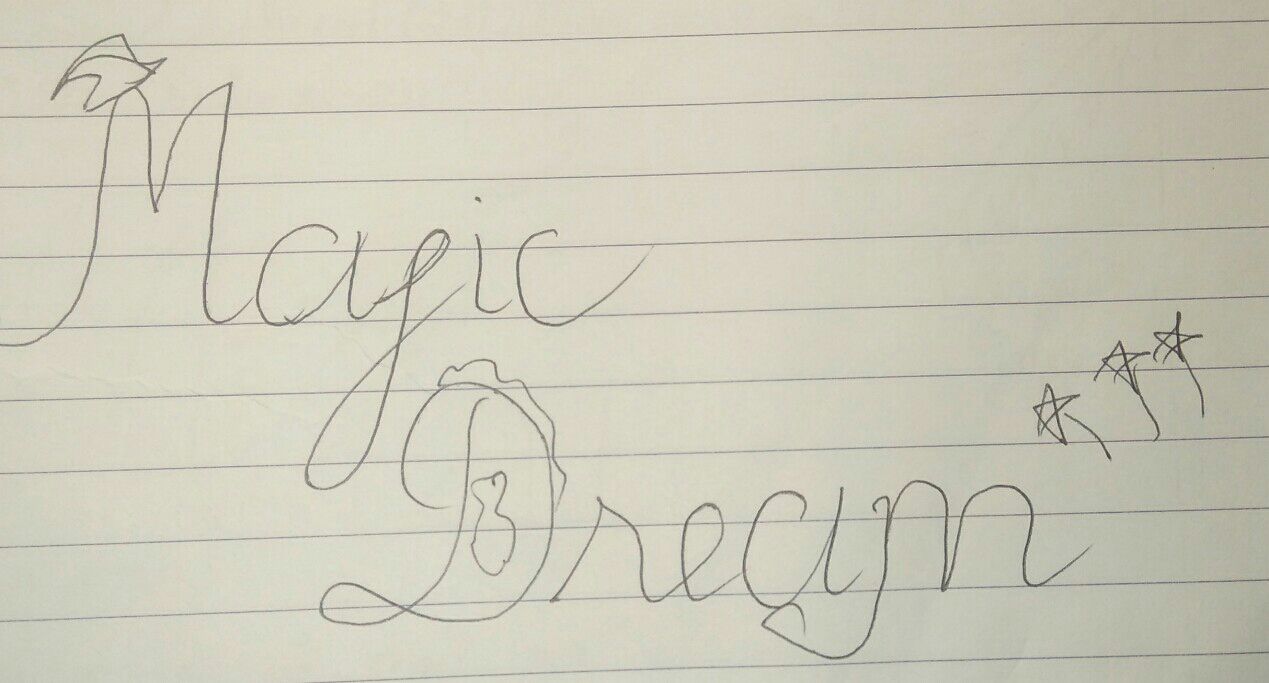 Magic
Dream